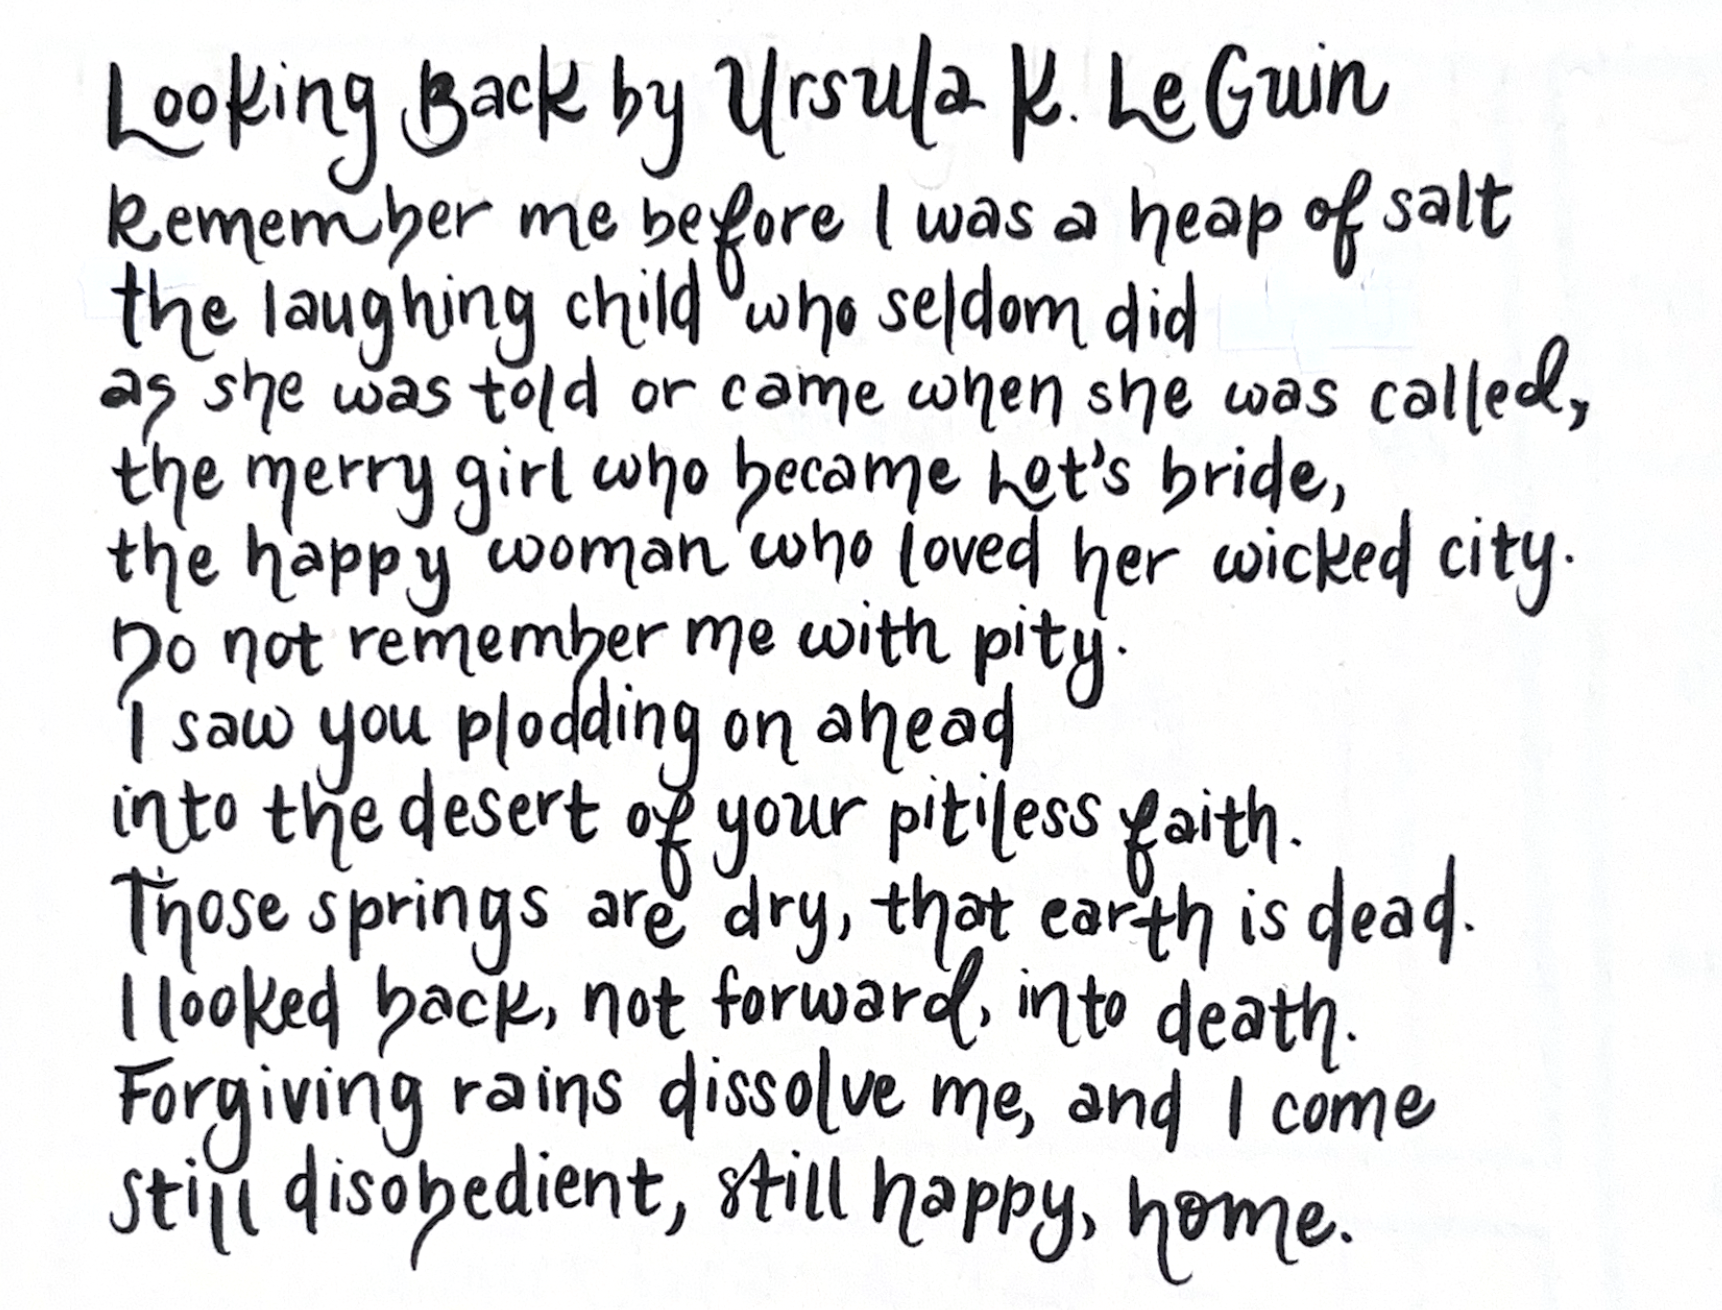 Looking Back by Ursula K. Le Guin
Remember me before I was a heap of salt
the laughing child who seldom did
as she was told or came when she was called,
the merry girl who became Lot's bride,
the happy woman who loved her wicked city.
Do not remember me with pity.
I saw you plodding on ahead
into the desert of your pitiless faith.
Those springs are dry, that earth is dead.
I looked back, not forward, into death.
Forgiving rains dissolve me, and I come
still disobedient, still happy, home.